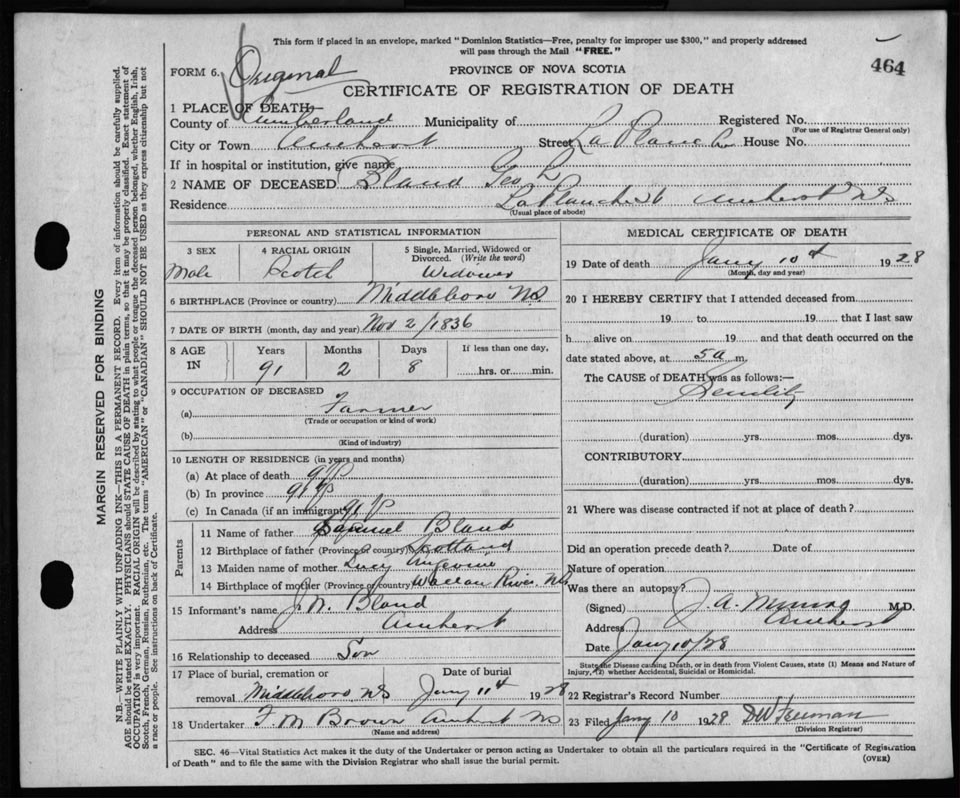 This form if placed in an envelope, marked "Dominion Statistics—Free, penalty for improper use $300," and properly addressed
will pass through the Mail "FREE."
464
FORM 6. Original
PROVINCE OF NOVA SCOTIA
CERTIFICATE OF REGISTRATION OF DEATH
1 PLACE OF DEATH—
County of Cumberland Municipality of Registered No.
(For use of Registrar General only)
City or Town Amherst Street La Planch House No.
If in hospital or institution, give name
2 NAME OF DECEASED Bland Geo L
Residence LaPlanche St Amherst NS
(Usual place of abode)
PERSONAL AND STATISTICAL INFORMATION
3 SEX 4 RACIAL ORIGIN 5 Single, Married, Widowed or Divorced. (Write the word)
Male Scotch Widower
6 BIRTHPLACE (Province or country) Middleboro NS
7 DATE OF BIRTH (month, day and year) Nov 2/1836
8 AGE IN Years Months Days If less than one day,
91 2 8 hrs. or min.
9 OCCUPATION OF DECEASED
(a) Farmer
(Trade or occupation or kind of work)
(b)
(Kind of industry)
10 LENGTH OF RESIDENCE (in years and months)
(a) At place of death
(b) In province 91
(c) In Canada (if an immigrant) 91
Parents
11 Name of father Samuel Bland
12 Birthplace of father (Province or country) Scotland
13 Maiden name of mother Lucy
14 Birthplace of mother (Province or country) Wallace River, NS
15 Informant's name J. N. Bland
Address Amherst
16 Relationship to deceased Son
17 Place of burial, cremation or Date of burial
removal Middleboro NS Jany 11th 1928
18 Undertaker F. M. Brown Amherst NS
(Name and address)
MEDICAL CERTIFICATE OF DEATH
19 Date of death Jany 10th 1928
(Month, day and year)
20 I HEREBY CERTIFY that I attended deceased from
19 to 19 that I last saw
h alive on 19 and that death occurred on the
date stated above, at 5 a m.
The CAUSE of DEATH was as follows:—
Senility
(duration) yrs. mos. dys.
CONTRIBUTORY
(duration) yrs. mos. dys.
21 Where was disease contracted if not at place of death?
Did an operation precede death? Date of
Nature of operation
Was there an autopsy?
(Signed) J. A. Munro M.D.
Address Amherst
Date Jany 10/28
State the Disease causing Death, or in death from Violent Causes, state (1) Means and Nature of
Injury, (2) whether Accidental, Suicidal or Homicidal.
22 Registrar's Record Number
23 Filed Jany 10 1928 DW Freeman
(Division Registrar)
SEC. 46—Vital Statistics Act makes it the duty of the Undertaker or person acting as Undertaker to obtain all the particulars required in the "Certificate of Registration
of Death" and to file the same with the Division Registrar who shall issue the burial permit.
(OVER)
MARGIN RESERVED FOR BINDING
N.B.—WRITE PLAINLY WITH UNFADING INK—THIS IS A PERMANENT RECORD. Every item of information should be carefully supplied.
AGE should be stated EXACTLY. PHYSICIANS should STATE CAUSE OF DEATH in plain terms, so that it may be properly classified. Exact statement of
OCCUPATION is very important. RACIAL ORIGIN will be described by stating to what people or tongue the deceased person belonged, whether English, Irish,
Scotch, French, German, Russian, Ruthenian, etc. The terms "AMERICAN" or "CANADIAN" SHOULD NOT BE USED as they express citizenship but not
a race or people. See instructions on back of Certificate.